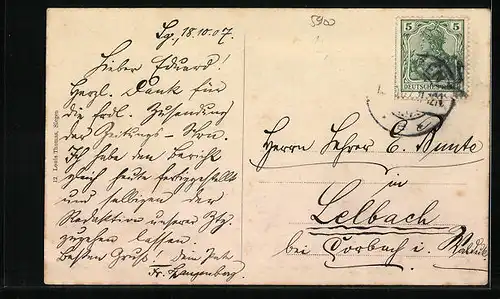 Sg., 18.10.07.
Lieber Eduard!
Herzl. Dank für
die frdl. Zusendung
der Zeitungs-
Ich habe den Bericht
gleich heute fertiggestellt
und selbigen der
Redaktion unserer Ztg.
zugehen lassen.
Besten Gruß! Dein
Fr. Langenberg.
5900
5 5
DEUTSCHES REICH
Herrn Lehrer E. Bunte
in
Lelbach
bei Corbach i. Waldeck
12 Louis Thomas, Siegen